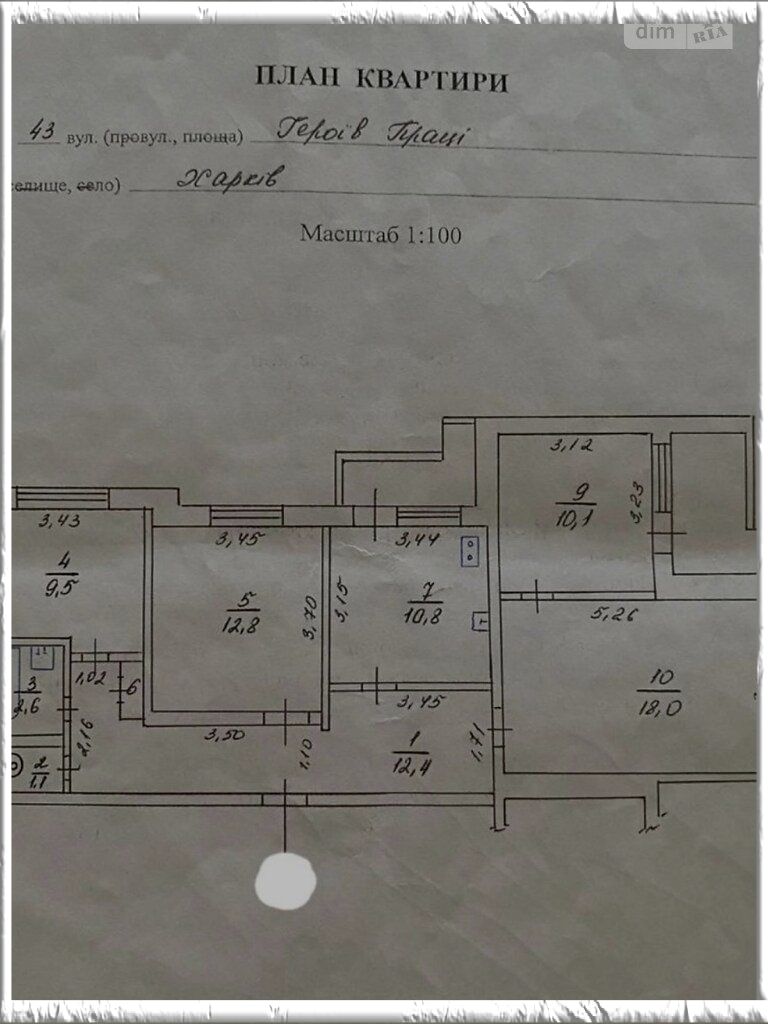 dim RIA
ПЛАН КВАРТИРИ
43 вул. (провул., площа) Героїв Праці
селище, село) Харків
Масштаб 1:100
3,12
9
10,1
3,23
3,43
3,45
3,44
4
9,5
5
12,8
3,70
3,15
7
10,8
5,26
10
18,0
3
2,6
1,02
6
3,45
2,16
3,50
1,10
1
12,4
1,71
2
1,1